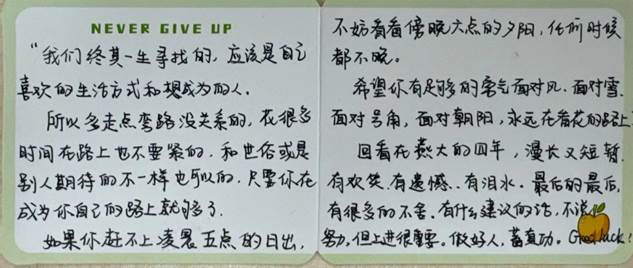 NEVER GIVE UP
“我们终其一生寻找的，应该是自己
喜欢的生活方式和想成为的人.
所以多走点弯路没关系的，花很多
时间在路上也不要紧的，和世俗或是
别人期待的不一样也可以的，只要你在
成为你自己的路上就够了.
如果你赶不上凌晨五点的日出，
不妨看看傍晚六点的夕阳，任何时候
都不晚。
希望你有足够的勇气面对风.面对雪.
面对号角，面对朝阳，永远在看花的路上
回看在燕大的四年，漫长又短暂.
有欢笑.有遗憾.有泪水.最后的最后，
有很多的不舍.有什么建议的话，不说
努力.但上进很重要.做好人.蓄真功. Good luck!